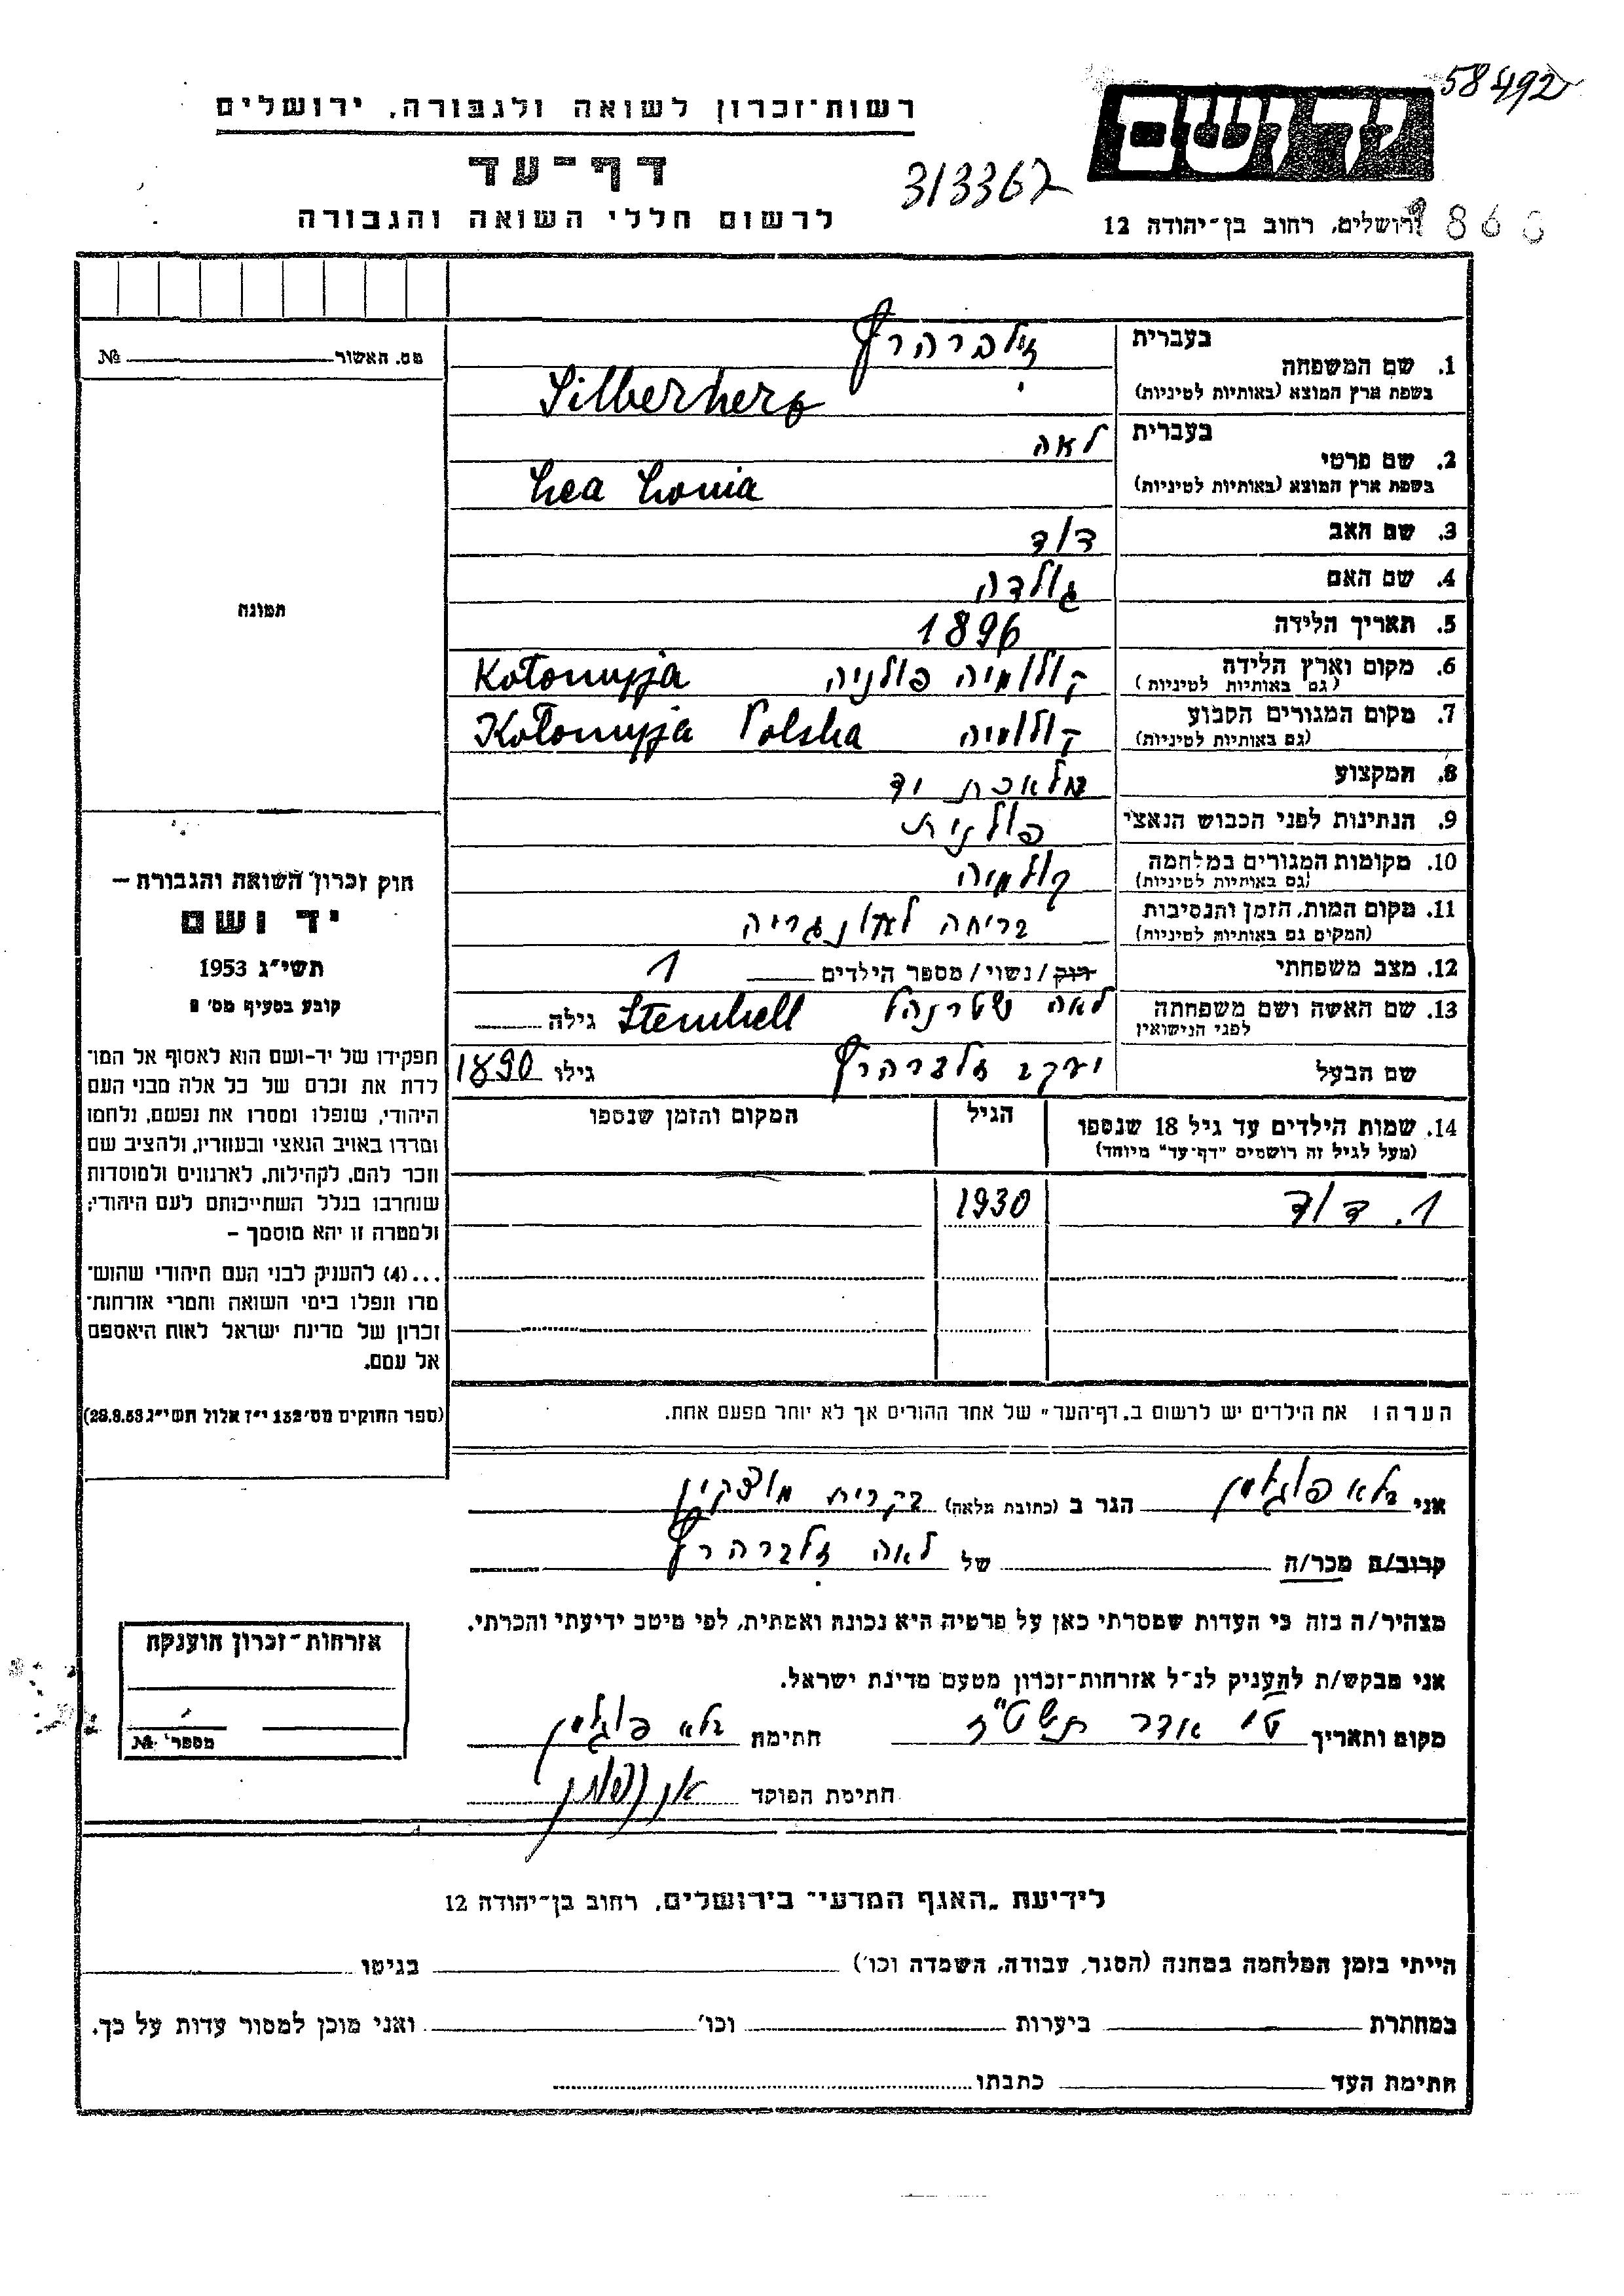 58492
רשות־זכרון לשואה ולגבורה, ירושלים
יד ושם
דף־עד
313367
לרשום חללי השואה והגבורה
ירושלים, רחוב בן־יהודה 12
מס. האשור № 
1. שם המשפחה בעברית זילברהרץ
בשפת ארץ המוצא (באותיות לטיניות) Silberherz
2. שם פרטי בעברית לאה
בשפת ארץ המוצא (באותיות לטיניות) Lea Lonia
3. שם האב דוד
4. שם האם גולדה
5. תאריך הלידה 1896
6. מקום וארץ הלידה (גם באותיות לטיניות) קולומיה פולניה Kołomyja
7. מקום המגורים הקבוע (גם באותיות לטיניות) קולומיה Kołomyja Polska
8. המקצוע מלאכת יד
9. הנתינות לפני הכבוש הנאצי פולנית
10. מקומות המגורים במלחמה (גם באותיות לטיניות) קולומיה
11. מקום המות, הזמן והנסיבות (המקום גם באותיות לטיניות) בריחה לאונגריה
12. מצב משפחתי רוק/נשוי/מספר הילדים 1
13. שם האשה ושם משפחתה לפני הנישואין לאה שטרנהל Sternhell גילה
שם הבעל יעקב זילברהרץ גילו 1890
14. שמות הילדים עד גיל 18 שנספו הגיל המקום והזמן שנספו
(מעל לגיל זה רושמים "דף־עד" מיוחד)
1. דוד 1930
תמונה
חוק זכרון השואה והגבורה —
יד ושם
תשי״ג 1953
קובע בסעיף מס׳ 2
תפקידו של יד-ושם הוא לאסוף אל המו־
לדת את זכרם של כל אלה מבני העם
היהודי, שנפלו ומסרו את נפשם, נלחמו
ומרדו באויב הנאצי ובעוזריו, ולהציב שם
וזכר להם, לקהילות, לארגונים ולמוסדות
שנחרבו בגלל השתייכותם לעם היהודי;
ולמטרה זו יהא מוסמך —
...(4) להעניק לבני העם היהודי שהוש־
מדו ונפלו בימי השואה והמרי אזרחות־
זכרון של מדינת ישראל לאות היאספם
אל עמם.
(ספר החוקים מס׳ 132 י״ז אלול תשי״ג 28.8.53)
הערה: את הילדים יש לרשום ב„דף־העד״ של אחד ההורים אך לא יותר מפעם אחת.
אני בלא הגר ב (כתובת מלאה) בקרית מוצקין
קרוב/ה מכר/ה של לאה זילברהרץ
מצהיר/ה בזה כי העדות שמסרתי כאן על פרטיה היא נכונה ואמתית, לפי מיטב ידיעתי והכרתי.
אני מבקש/ת להעניק לנ״ל אזרחות־זכרון מטעם מדינת ישראל.
מקום ותאריך ט׳ אדר תשט״ז חתימת בלא
חתימת הפוקד
אזרחות־זכרון הוענקה
מספר № 
לידיעת „האגף המדעי״ בירושלים, רחוב בן־יהודה 12
הייתי בזמן המלחמה במחנה (הסגר, עבודה, השמדה וכו׳) בגיטו
במחתרת ביערות וכו׳ ואני מוכן למסור עדות על כך.
חתימת העד כתבתו